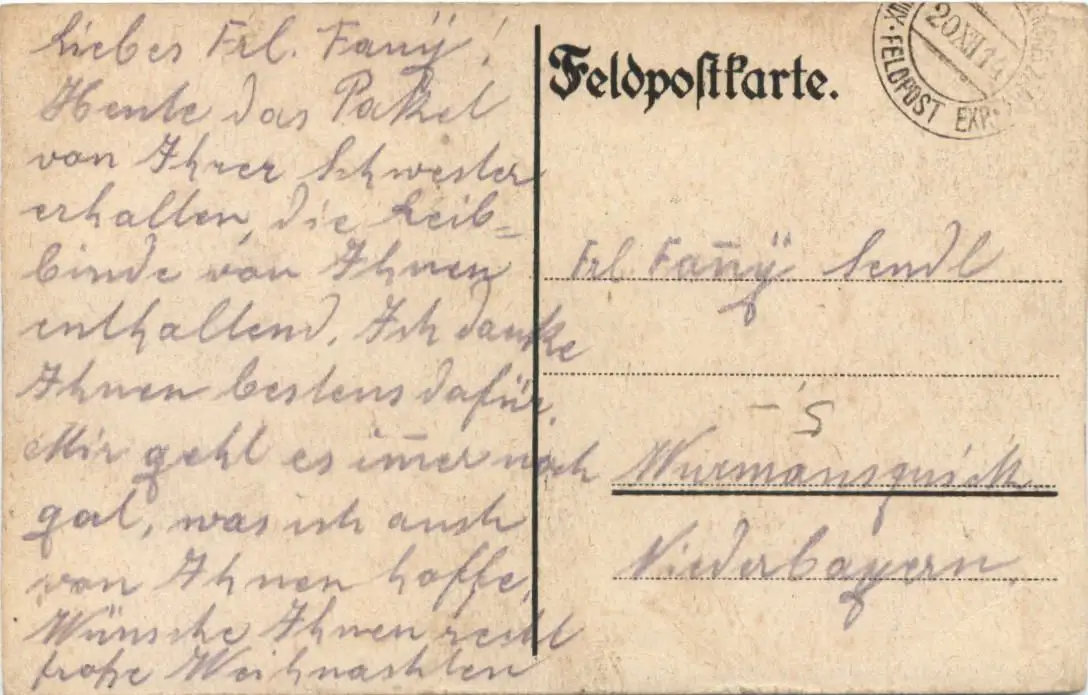 Liebes Frl. Fañy!
Heute das Paket
von Ihrer Schwester
erhalten, die Leib=
binde von Ihnen
enthaltend. Ich danke
Ihnen bestens dafür.
Mir geht es im̄er noch
gut, was ich auch
von Ihnen hoffe.
Wünsche Ihnen recht
frohe Weihnachten
Feldpostkarte.
20 XII 14
FELDPOST EXP.
Frl. Fañy Sendl
– S
Wurmansquick
Niederbayern.